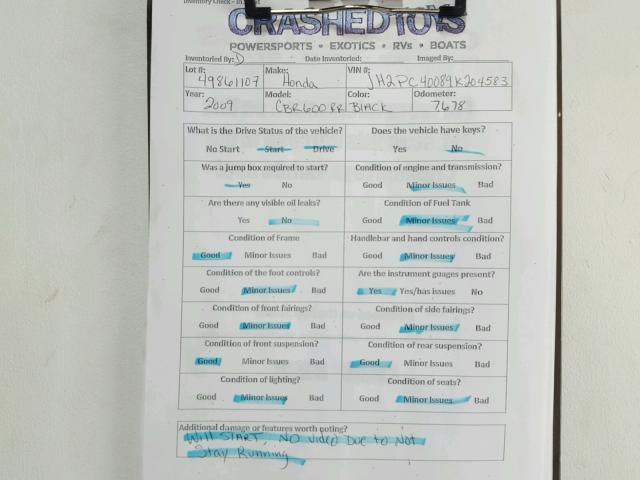 Inventory Check - In
CRASHEDTOYS
POWERSPORTS • EXOTICS • RVs • BOATS
Inventoried By: D Date Inventoried: Imaged By:
Lot #: 49861107 Make: Honda VIN #: JH2PC40089K204583
Year: 2009 Model: CBR600RR Color: Black Odometer: 7678
What is the Drive Status of the vehicle? Does the vehicle have keys?
No Start Start Drive Yes No
Was a jump box required to start? Condition of engine and transmission?
Yes No Good Minor Issues Bad
Are there any visible oil leaks? Condition of Fuel Tank
Yes No Good Minor Issues Bad
Condition of Frame Handlebar and hand controls condition?
Good Minor Issues Bad Good Minor Issues Bad
Condition of the foot controls? Are the instrument guages present?
Good Minor Issues Bad Yes Yes/has issues No
Condition of front fairings? Condition of side fairings?
Good Minor Issues Bad Good Minor Issues Bad
Condition of front suspension? Condition of rear suspension?
Good Minor Issues Bad Good Minor Issues Bad
Condition of lighting? Condition of seats?
Good Minor Issues Bad Good Minor Issues Bad
Additional damage or features worth noting?
Will START, No Video Due to Not
Stay Running